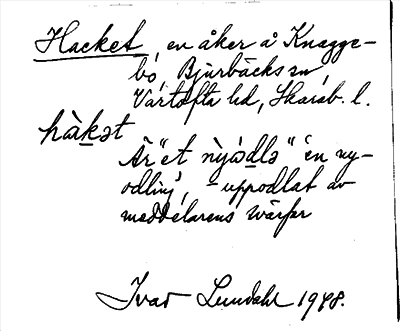 Hacket, en åker å Knagge-
bo, Bjurbäcks sn,
Vartofta hd, Skarab. l.
hàkət
Är "et nỳådlə" 'en ny-
odling', - uppodlat av
meddelarens svärfar
Ivar Lundahl 1948.